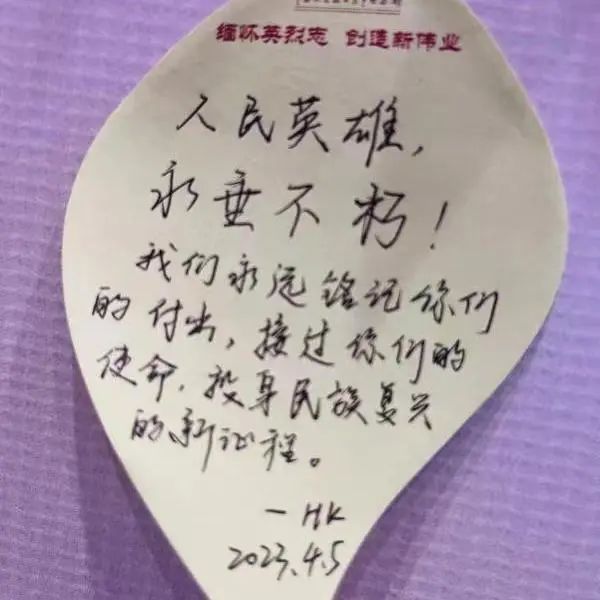 缅怀英烈志 创造新伟业
人民英雄，
永垂不朽！
我们永远铭记你们
的付出，接过你们的
使命，投身民族复兴
的新征程。
一HK
2023.4.5